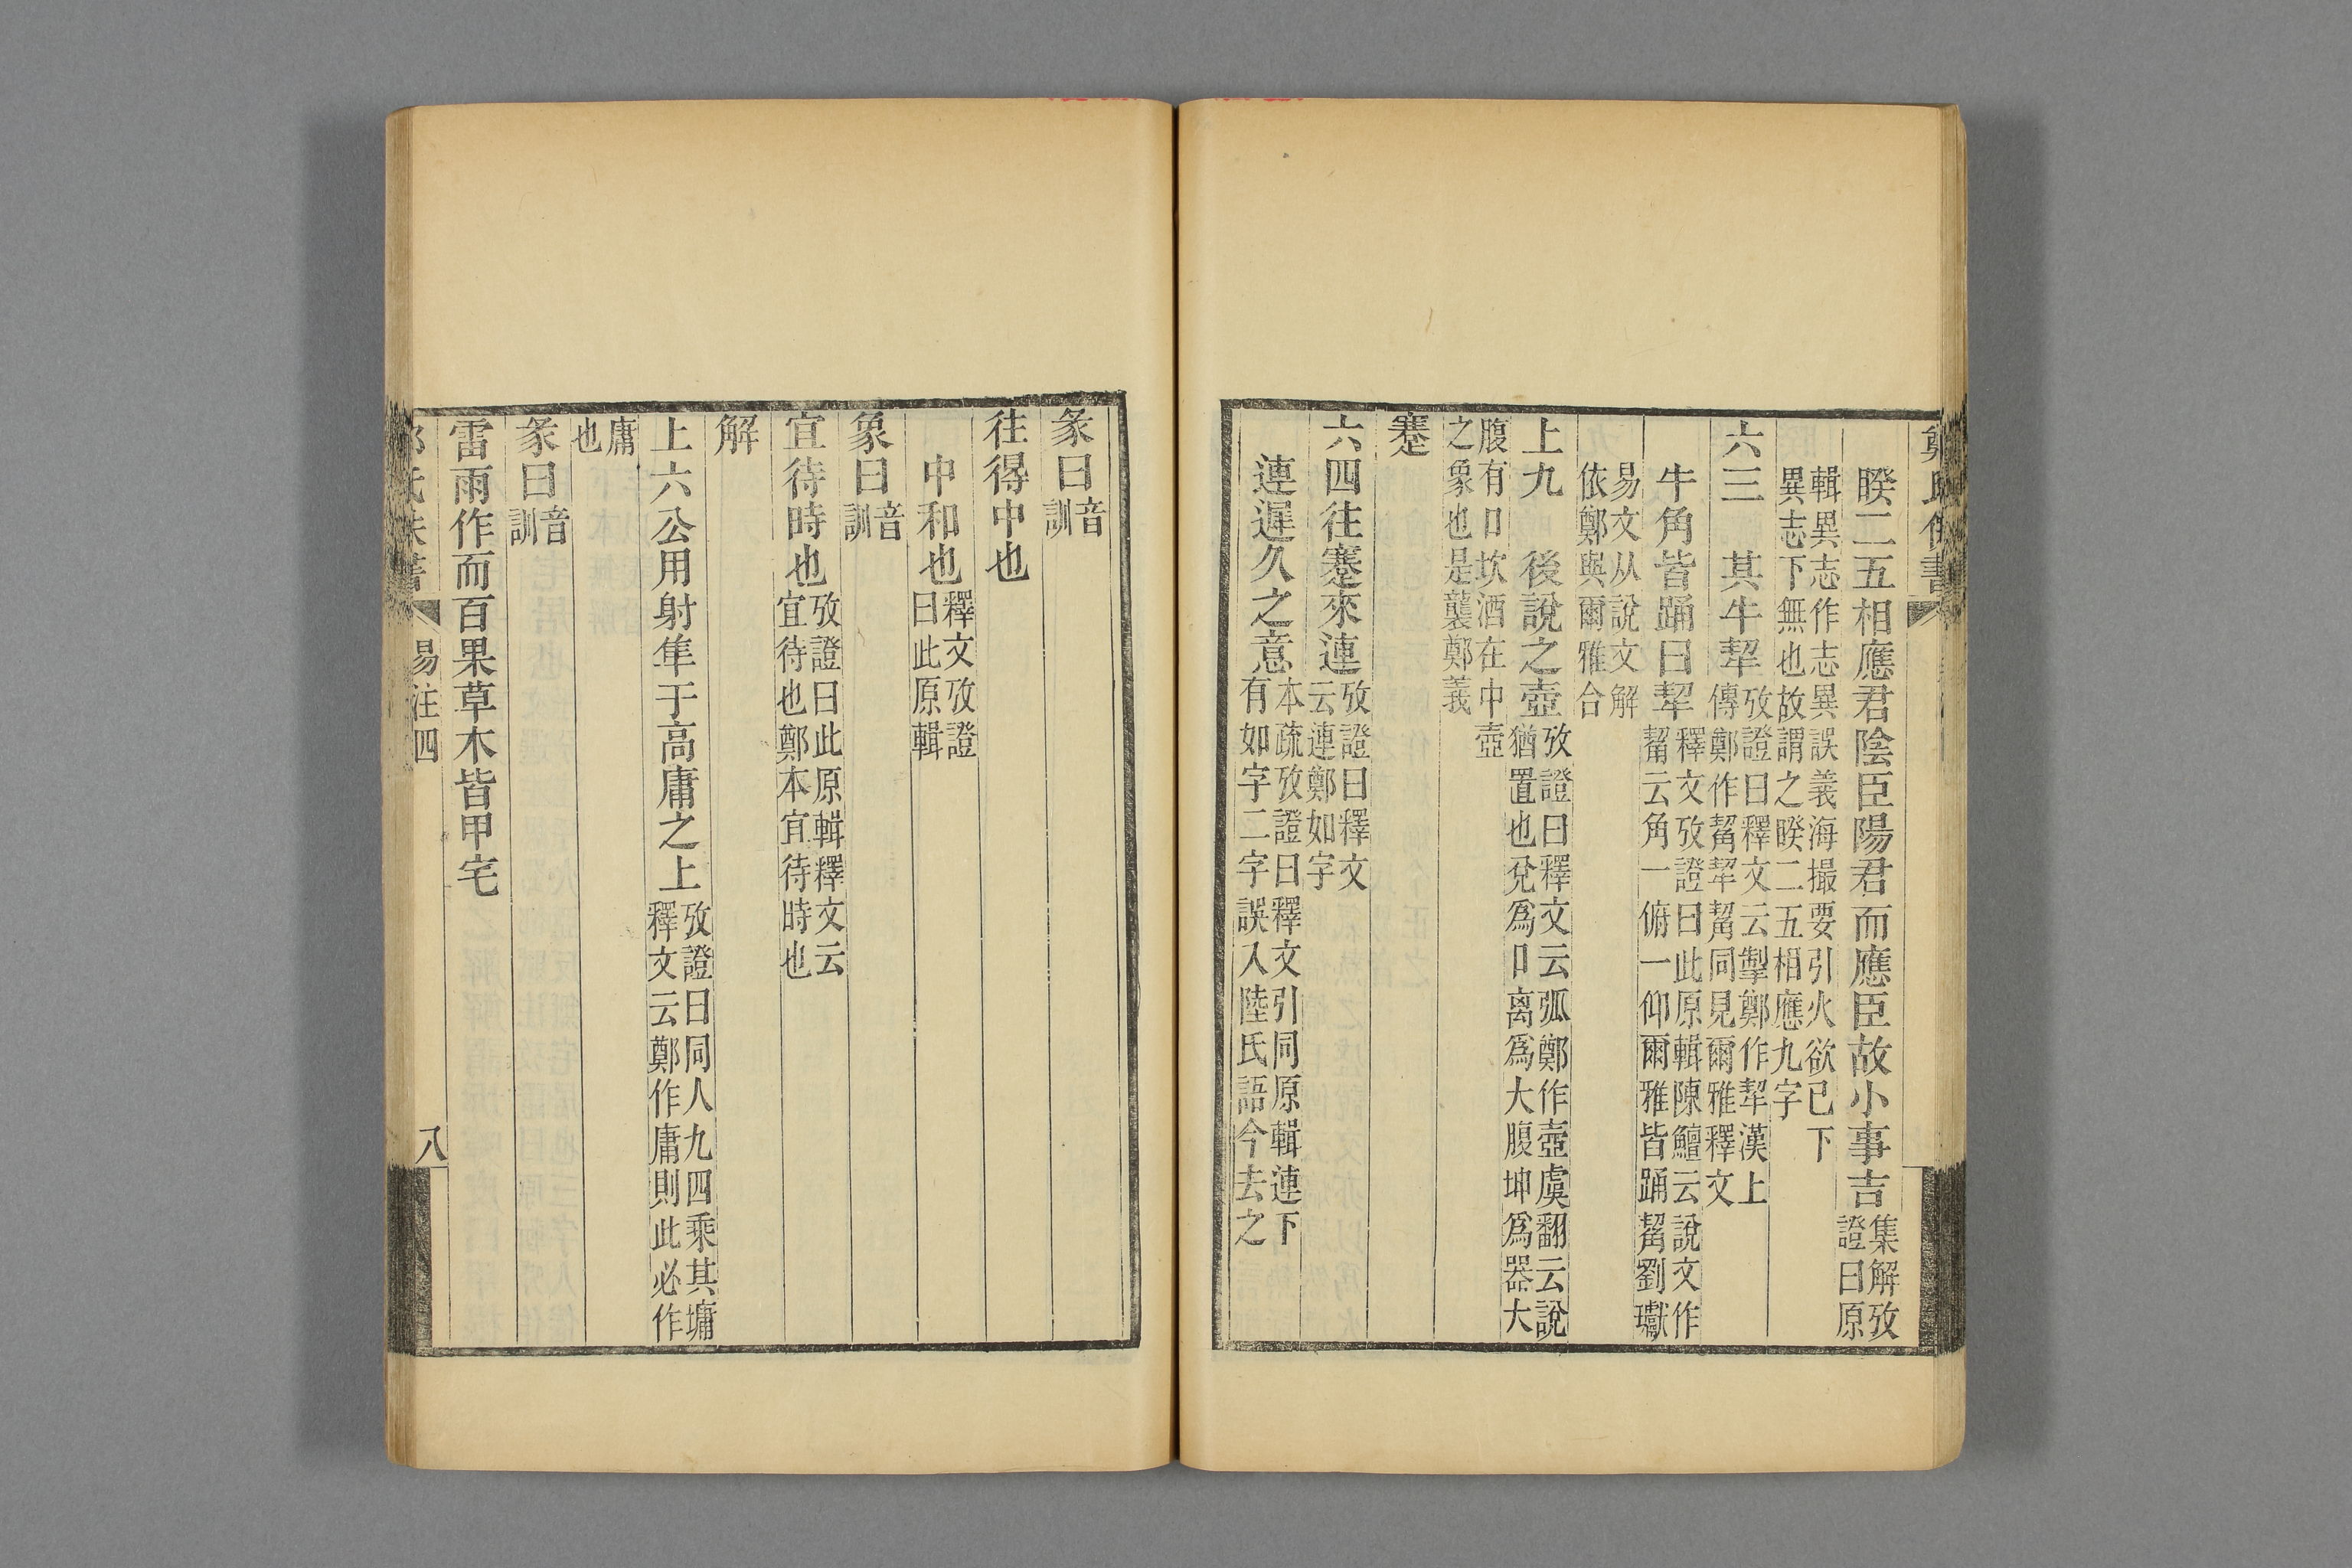 睽二五相應君陰臣陽君而應臣故小事吉集解攷證曰原
輯異志作志異誤義海撮要引火欲已下異志下無也故謂之睽二五相應九字
六三　其牛犎攷證曰釋文云掣鄭作犎漢上傳鄭作觢犎觢同見爾雅釋文
牛角皆踊曰犎釋文攷證曰此原輯陳鱣云說文作觢云角一俯一仰爾雅皆踊觢劉瓛
易文从說文解依鄭與爾雅合
上九　後說之壺攷證曰釋文云弧鄭作壺虞翻云說猶置也兌爲口离爲大腹坤爲器大
腹有口坎酒在中壺之象也是襲鄭義
蹇
六四往蹇來連攷證曰釋文云連鄭如字
連遲久之意本疏攷證曰釋文引同原輯連下有如字二字誤入陸氏語今去之
彖曰音訓
往得中也
中和也釋文攷證曰此原輯
象曰音訓
宜待時也攷證曰此原輯釋文云宜待也鄭本宜待時也
解
上六公用射隼于高庸之上攷證曰同人九四乘其墉釋文云鄭作庸則此必作
庸也
彖曰音訓
雷雨作而百果草木皆甲宅
易注四
八